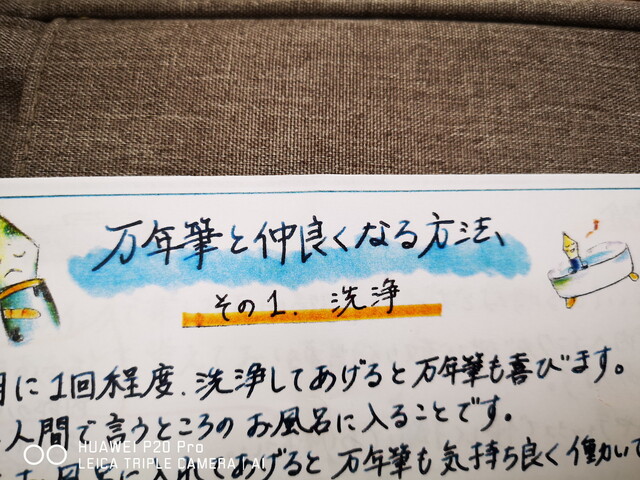 万年筆と仲良くなる方法、
その1. 洗浄
月に1回程度、洗浄してあげると万年筆も喜びます。
人間で言うところのお風呂に入ることです。
お風呂に入れてあげると万年筆も気持ち良く働いて
HUAWEI P20 Pro
LEICA TRIPLE CAMERA | AI